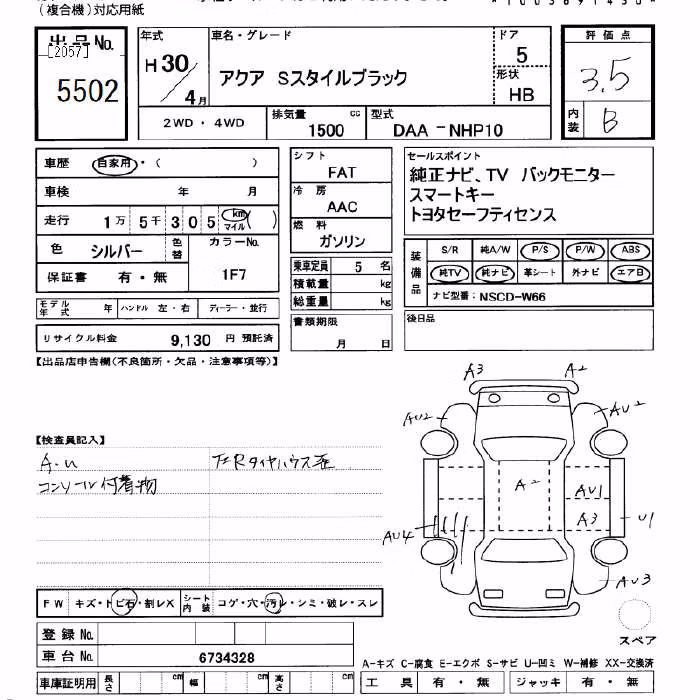 (複合機)対応用紙
出品No.
[2057]
5502
年式
H30/4月
車名・グレード
アクア Sスタイルブラック
ドア
5
形状
HB
評価点
3.5
内装
B
2WD・4WD
排気量
1500
cc
型式
DAA-NHP10
車歴
自家用・( )
車検
年 月
走行
1万 5千 305 km マイル ( )
色
シルバー
色替
カラーNo.
1F7
保証書
有・無
シフト
FAT
冷房
AAC
燃料
ガソリン
乗車定員 5 名
積載量 kg
総重量 kg
書類期限
月 日
セールスポイント
純正ナビ、TV バックモニター
スマートキー
トヨタセーフティセンス
装備品
S/R 純A/W P/S P/W ABS
純TV 純ナビ 革シート 外ナビ エアB
ナビ型番: NSCD-W66
後日品
モデル年式 年 ハンドル 左・右 ディーラー・並行
リサイクル料金 9,130 円 預託済
【出品店申告欄(不良箇所・欠品・注意事項等)】
【検査員記入】
A・U
コンソール付着物
A3
A2
AU2
AU2
A2
AU1
A3
U1
AU4
AU3
スペア
FW キズ・トビ石・割レX シート内装 コゲ・穴・汚レ・シミ・破レ・スレ
登録No.
車台No. 6734328
車庫証明用 長さ cm 幅 cm 高さ cm
A-キズ C-腐食 E-エクボ S-サビ U-凹ミ W-補修 XX-交換済
工具 有・無 ジャッキ 有・無